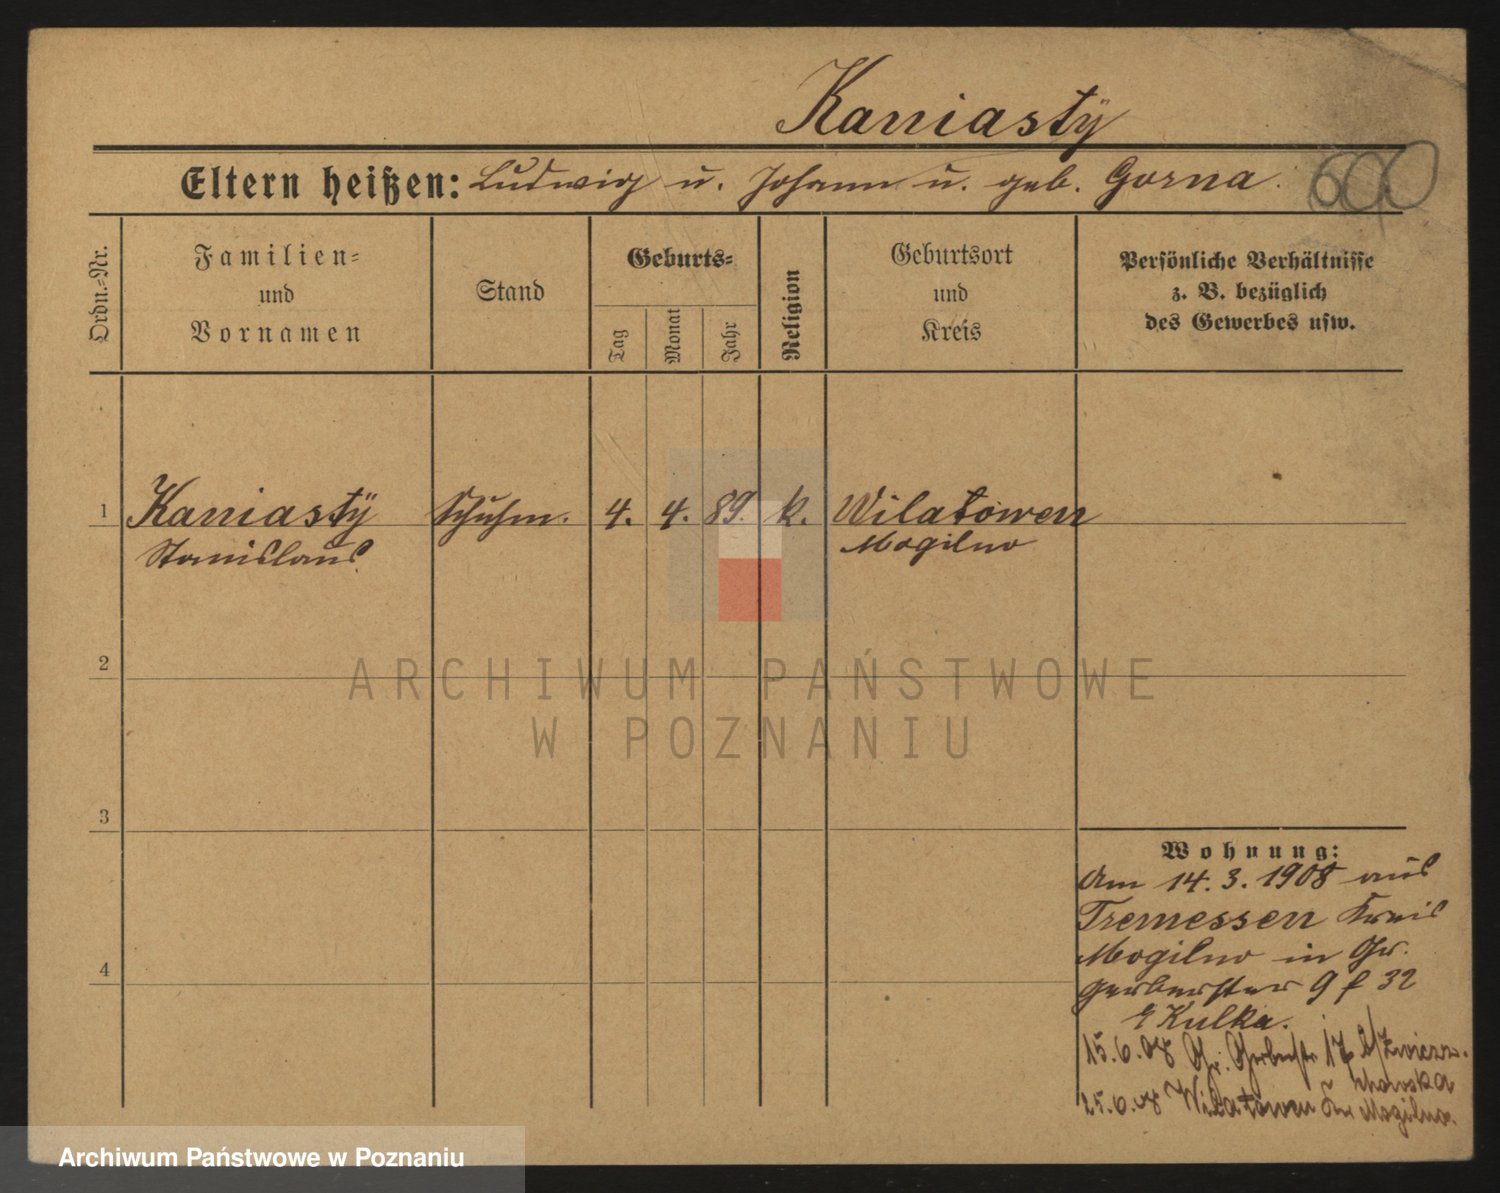 Kaniasty
Eltern heißen: Ludwig u. Johann u. geb. Gorna.
600
Ordn.-Nr.
Familien- und Vornamen
Stand
Geburts-
Tag
Monat
Jahr
Religion
Geburtsort und Kreis
Persönliche Verhältnisse
z. B. bezüglich
des Gewerbes usw.
1 Kaniastÿ Schuhm. 4. 4. 89. k. Wilatowen
Stanislaus Mogilno
2
ARCHIWUM PAŃSTWOWE
W POZNANIU
3
4
Wohnung:
Am 14.3.1908 aus
Tremessen Kreis
Mogilno in Gr.
Gerberstr 9 f 32
Kulka.
15.6.08 Gr. Gerberstr. 17
25.6.08 Wilatowen Kr Mogilno.
Archiwum Państwowe w Poznaniu